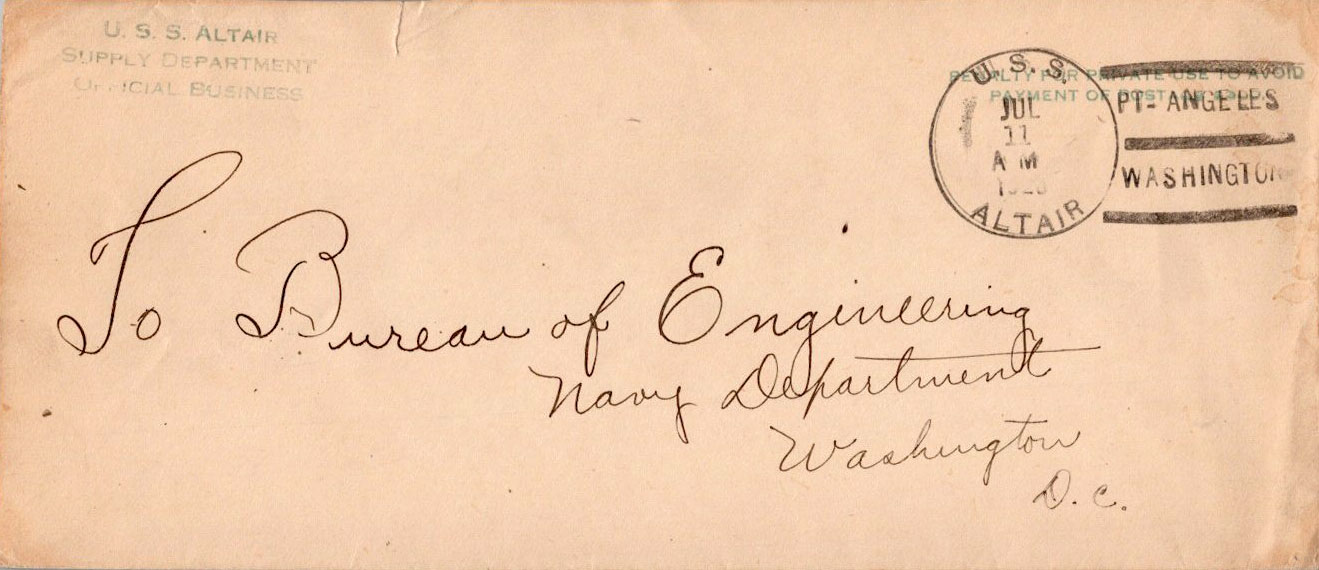 U. S. S. ALTAIR
SUPPLY DEPARTMENT
OFFICIAL BUSINESS
PENALTY FOR PRIVATE USE TO AVOID
PAYMENT OF POSTAGE
U. S. S.
JUL
11
A M
ALTAIR
PT- ANGELES
WASHINGTON
To Bureau of Engineering
Navy Department
Washington
D. C.